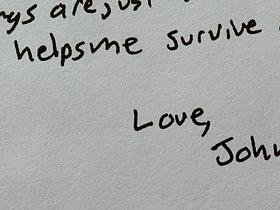 are, just
helps me survive
Love,
John